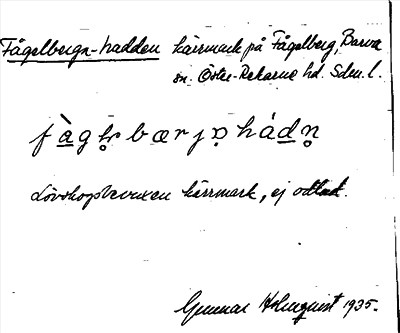 Fågelberga-hadden kärrmark på Fågelberg, Barva
sn. Öster-Rekarne hd. Sdm. l.
Lövskogsbevuxen kärrmark, ej odlad.
Gunnar Holmquist 1935.